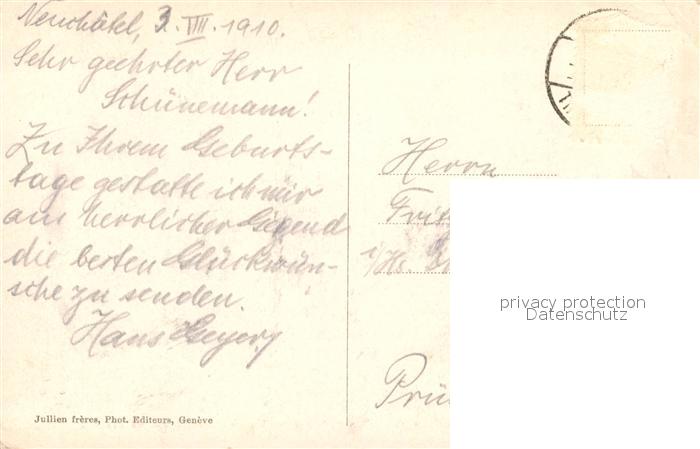 Neuchâtel, 3. VIII. 1910.
Sehr geehrter Herr
Schünemann!
Zu Ihrem Geburts-
tage gestatte ich mir
aus herrlicher Gegend
die besten Glückwün-
sche zu senden.
Hans Geyer
Herrn
Fritz
i/Hs.
Jullien frères, Phot. Editeurs, Genève
privacy protection
Datenschutz